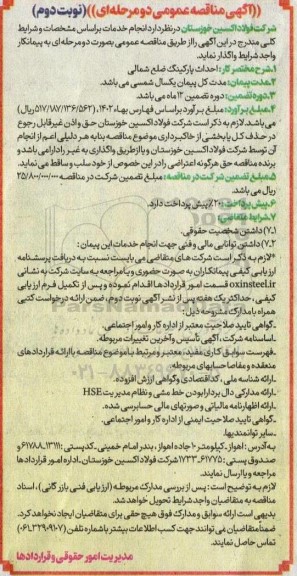 ((آگهی مناقصه عمومی دو مرحله‌ای))(نوبت دوم)
شرکت فولاد اکسین خوزستان در نظر دارد انجام خدمات براساس مشخصات و شرایط
کلی مندرج در این آگهی را از طریق مناقصه عمومی بصورت دو مرحله ای به پیمانکار
واجد شرایط واگذار نماید.
۱.شرح مختصر کار: احداث پارکینگ ضلع شمالی
۲.مدت پیمان: مدت کل پیمان یکسال شمسی می باشد.
۳.دوره تضمین: دوره تضمین ۱۲ ماه می باشد.
۴.مبلغ برآورد: مبلغ برآورد براساس فهارس بهاء ۱۴۰۲، (۵۱۷/۱۸۷/۱۳۶/۵۶۲ ریال)
می باشد. لازم به ذکر است شرکت فولاد اکسین خوزستان حق و اذن غیر قابل رجوع
در حذف کل یا بخشی از خاکبرداری موضوع مناقصه بنا به هر دلیلی اعم از انجام
آن توسط شرکت فولاد اکسین خوزستان و یا از طریق واگذاری به غیر را دارا می باشد و
برنده مناقصه حق هرگونه اعتراضی را در این خصوص از خود سلب و ساقط می نماید.
۵.مبلغ تضمین شرکت در مناقصه: مبلغ تضمین شرکت در مناقصه ۲۵/۸۰۰/۰۰۰/۰۰۰
ریال می باشد.
۶.پیش پرداخت: ۲۰٪ پیش پرداخت دارد.
۷.شرایط متقاضی:
۷.۱) داشتن شخصیت حقوقی.
۷.۲) داشتن توانایی مالی و فنی جهت انجام خدمات این پیمان:
*لازم به ذکر است شرکت های متقاضی می بایست نسبت به دریافت پرسشنامه
ارزیابی کیفی پیمانکاران به صورت حضوری و یا مراجعه به سایت شرکت به نشانی
oxinsteel.ir قسمت امور قراردادها اقدام نموده و پس از تکمیل فرم ارزیابی
کیفی، حداکثر یک هفته پس از نشر آگهی نوبت دوم، ضمن ارائه درخواست کتبی
همراه با مدارک مشروحه ذیل:
.گواهی تایید صلاحیت معتبر از اداره کار و امور اجتماعی.
.اساسنامه شرکت، آگهی تأسیس و آخرین تغییرات مربوطه.
.فهرست سوابق کاری مفید، معتبر و مرتبط با موضوع مناقصه با ارائه قراردادهای
منعقده و مفاصا حسابهای مربوطه.
.ارائه شناسه ملی، کد اقتصادی و گواهی ارزش افزوده.
.ارائه مدارکی دال بر دارا بودن خط مشی و نظام مدیریت HSE
.ارائه اظهارنامه مالیاتی و صورتهای مالی حسابرسی شده.
.گواهی تایید صلاحیت ایمنی از اداره کار و امور اجتماعی.
.سایر توانمندیها.
به آدرس: اهواز .کیلومتر ۱۰ جاده اهواز، بندر امام خمینی .کدپستی: ۶۱۷۸۸۱۳۱۱۱ و
صندوق پستی: ۱۷۳۳.۶۱۷۷۵ شرکت فولاد اکسین خوزستان .اداره امور قراردادها
مراجعه و یا ارسال نمایند.
لازم به توضیح است: پس از بررسی مدارک مربوطه (ارزیابی فنی بازرگانی)، اسناد
مناقصه به متقاضیان واجد شرایط تحویل خواهد شد.
بدیهی است ارائه سوابق و مدارک فوق هیچ حقی برای متقاضیان ایجاد نخواهد کرد.
ضمناً متقاضیان می توانند جهت کسب اطلاعات بیشتر با شماره تلفن (۰۶۱.۳۲۹۰۹۱۰۷)
تماس حاصل نمایند.
مدیریت امور حقوقی و قراردادها